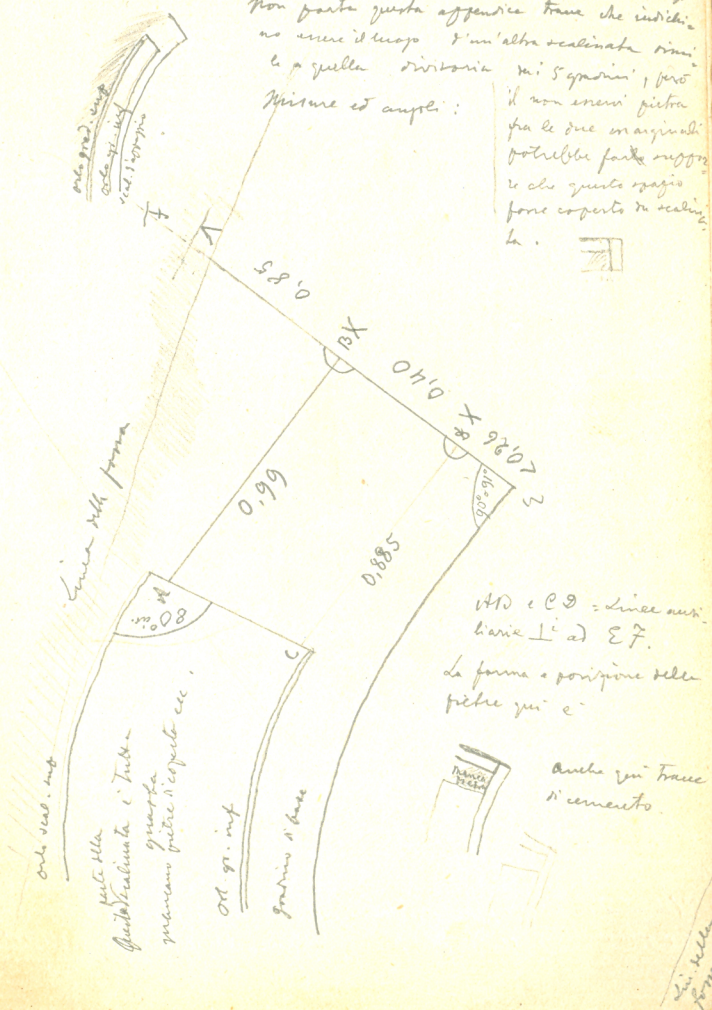 Non porta questa appendice tracce che indichi-
no essere il luogo d'un'altra scalinata simi-
le a quella divisoria dei 5 gradini, però
il non esservi pietra
fra le due marginali
potrebbe farlo suppor-
re che questo spazio
fosse coperto da scalina-
ta.
Misure ed angoli:
orlo grad. sup
orlo gr. inf
scal. d'appoggio
F
0,85
B X
0,40
X
0,26
E
0,99
0,885
Linea della fossa
A
80°
C
AB e CD = Linee ausi-
liarie ⊥i ad EF.
La forma e posizione delle
pietre qui è
manca
pietra
anche qui tracce
di cemento
orlo scal. sup
Questa parte della
scalinata è tutta
guasta
mancano pietre di coperta ecc.
orl. gr. inf
gradino di base
Lin. della
fossa